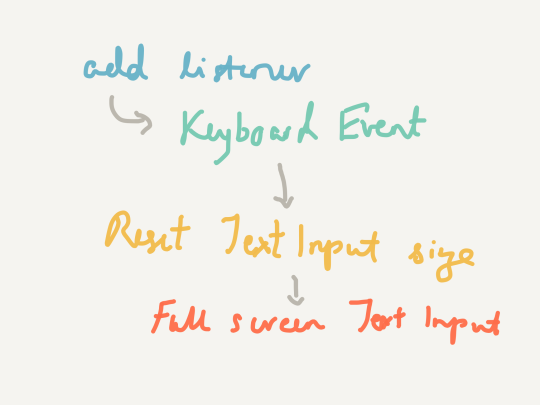 add listener
Keyboard Event
Reset TextInput size
Full screen Text Input